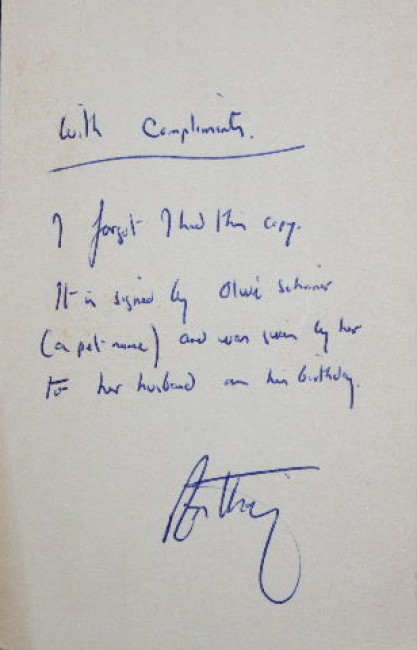 With Compliments.
I forgot I had this copy.
It is signed by Olive Schreiner
(a pet-name) and was given by her
to her husband on his birthday.
Anthony